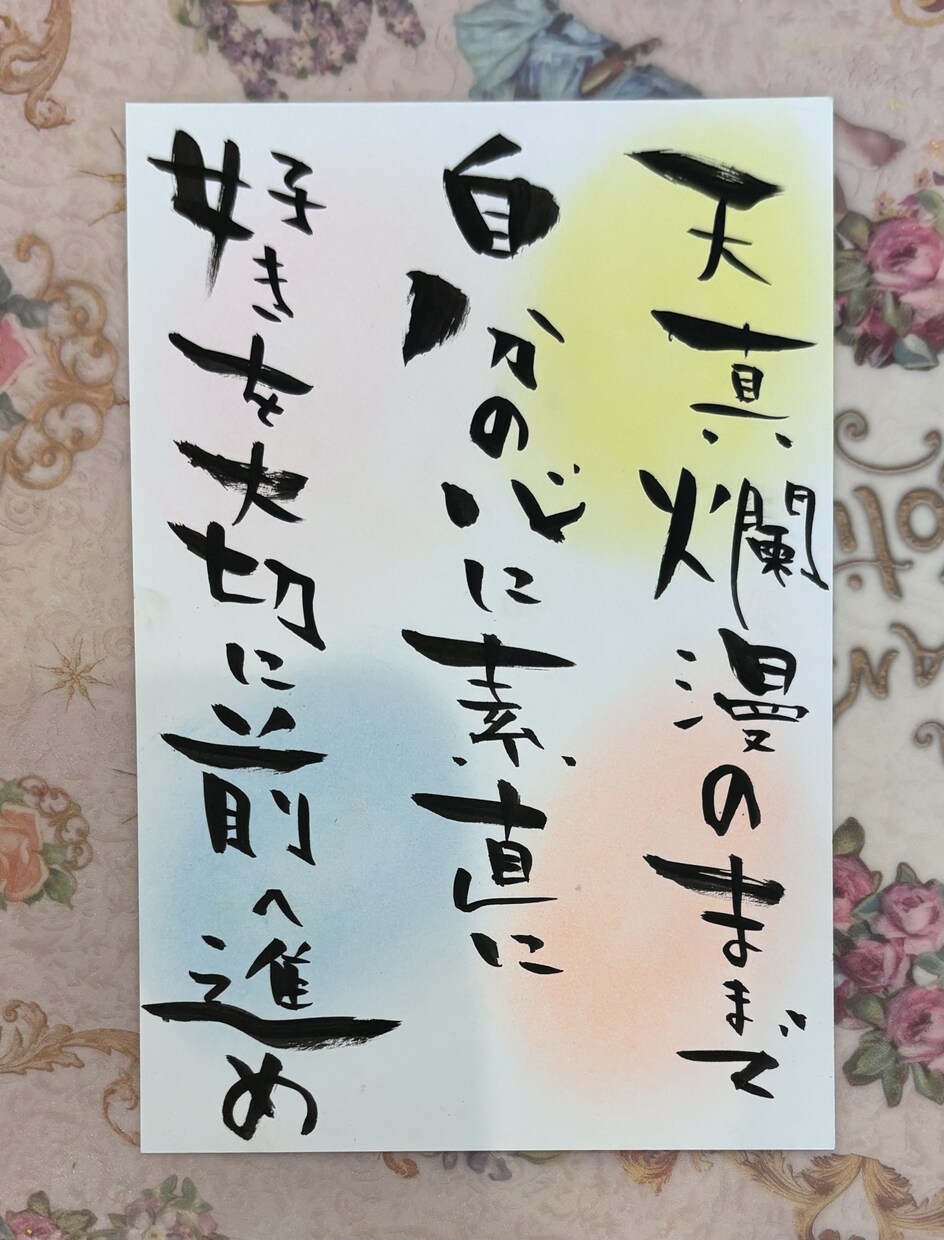 天真爛漫のままで
自分の心に素直に
好きを大切に前へ進め